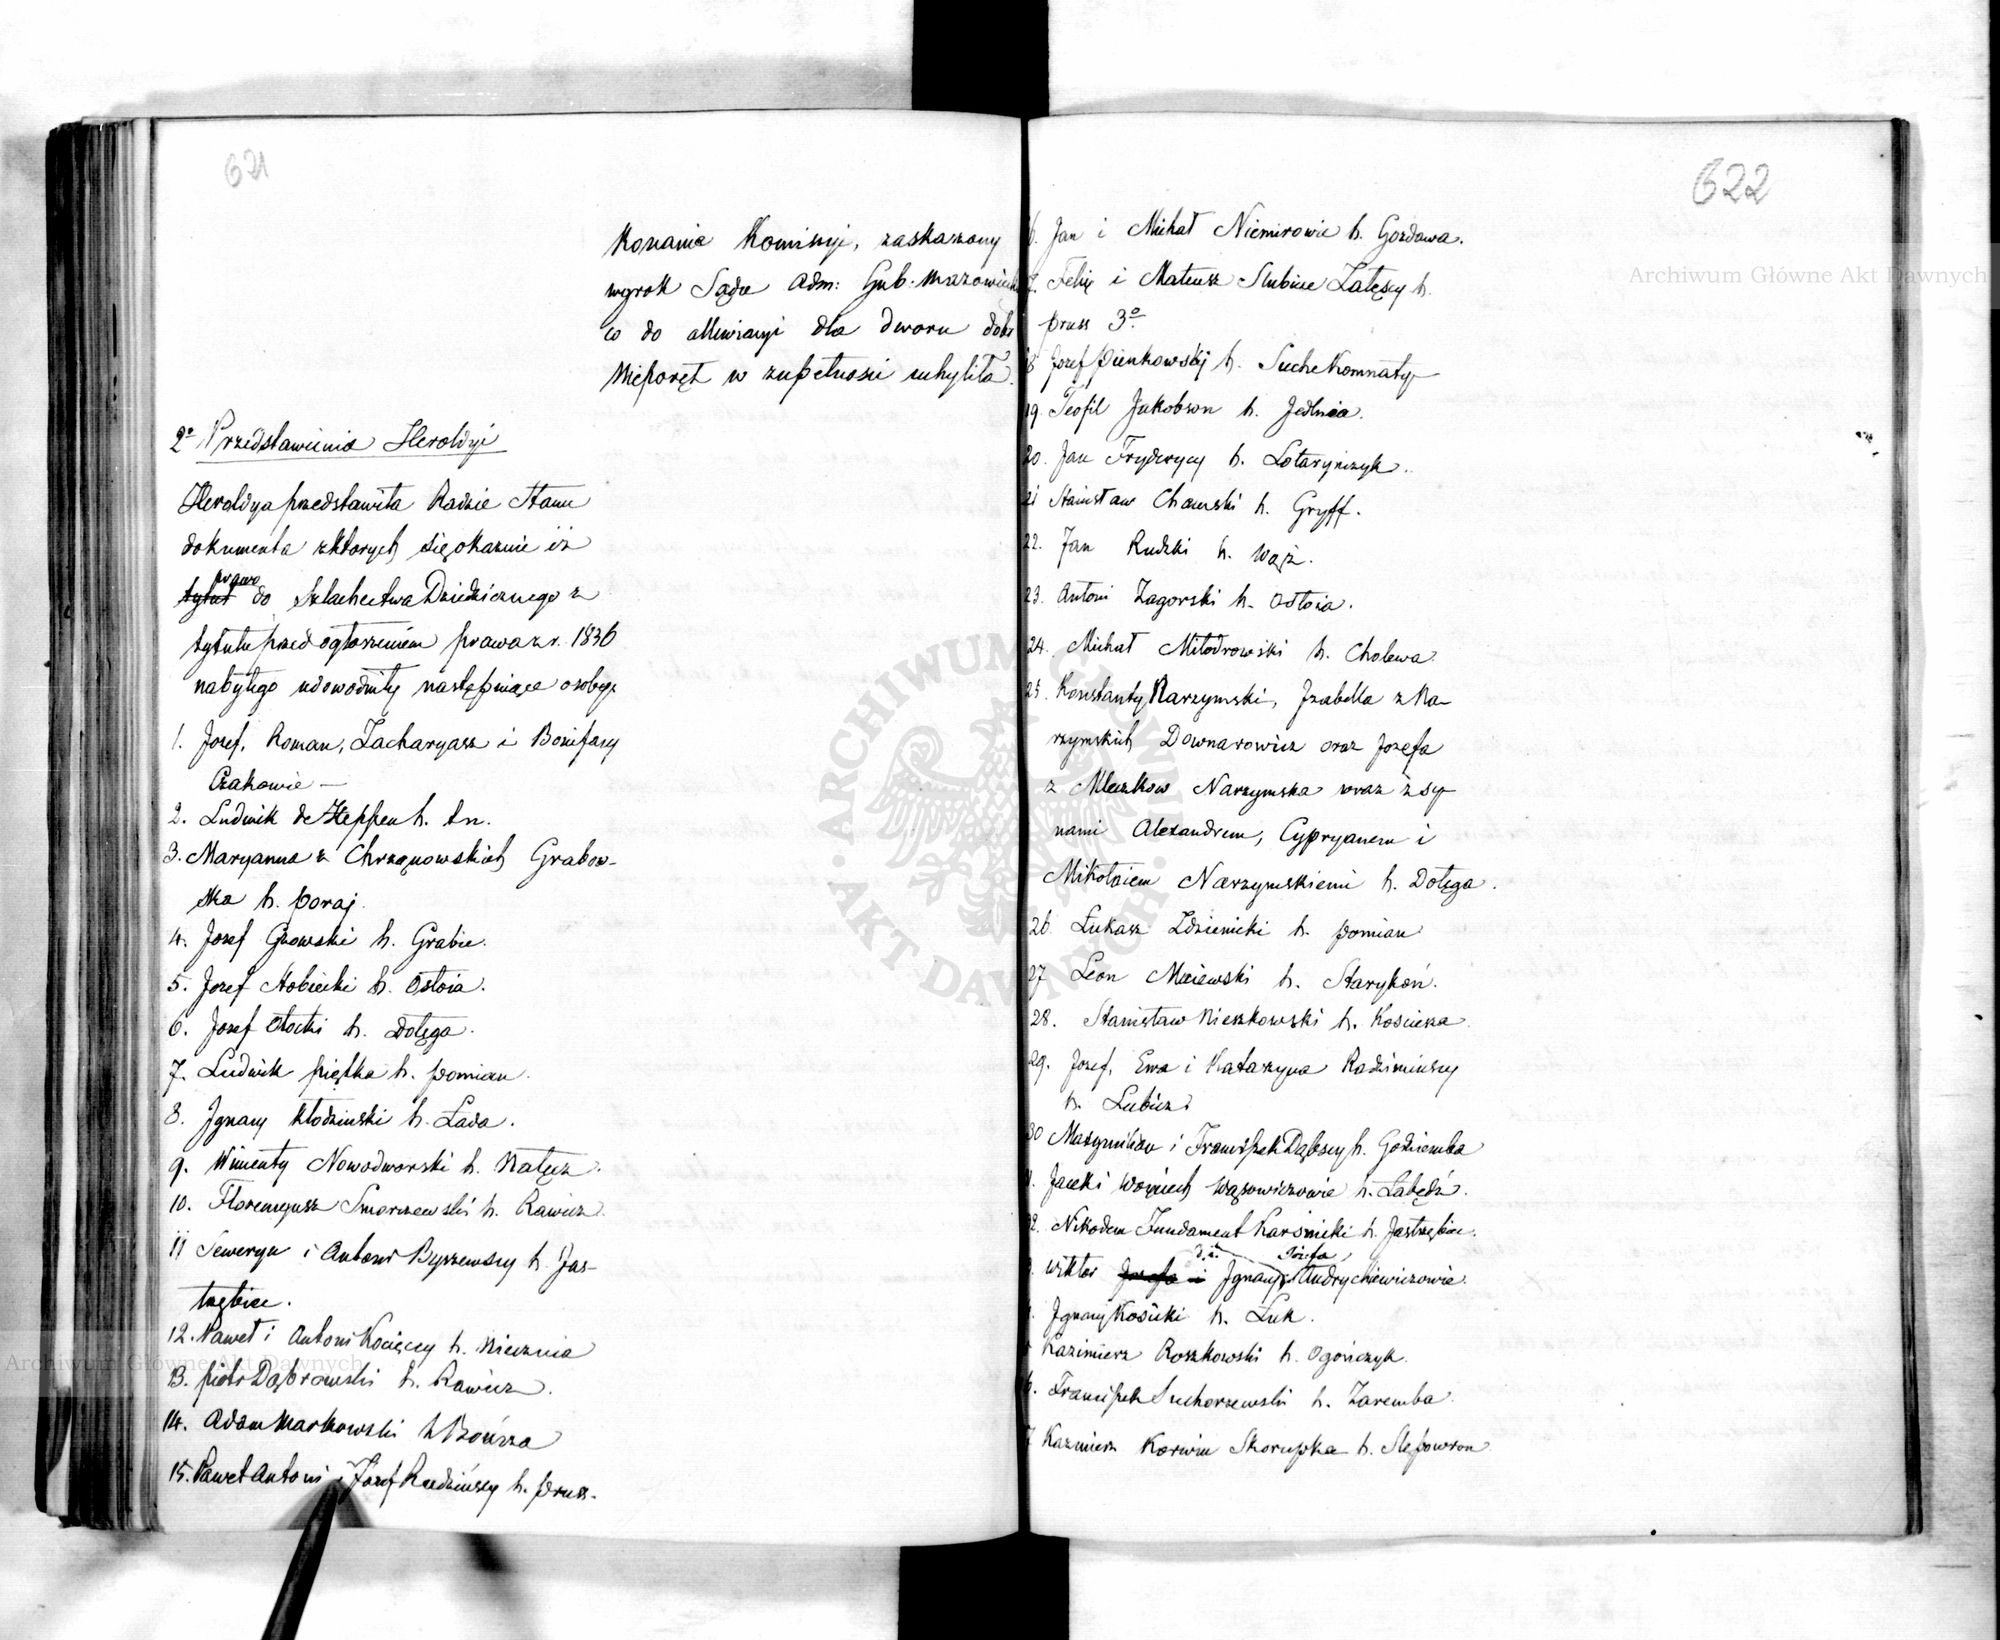 621
konanie Komissyi, zaskarzony
wyrok Sądu Adm: Gub: Mazowieck
co do allewiacyi dla dworu dobr
Nieporęt w zupełnosci uchyliła.
2º Przedstawienia Heroldyi
Heroldya przedstawiła Radzie Stanu
dokumenta z ktorych się okazuie iż
prawo
tytuł do Szlachectwa Dziedzicznego z
tytułu przed ogłoszeniem prawa z r. 1836
nabytego udowodniły następuiące osoby:
1. Jozef, Roman, Zacharyasz i Bonifacy
Czakowie —
2. Ludwik de Heppen h. tn.
3. Maryanna z Chrząnowskich Grabow-
ska h. Poraj.
4. Jozef Gzowski h. Grabie.
5. Jozef Hobicki h. Ostoia.
6. Jozef Otocki h. Dołęga.
7. Ludwik Piętka h. Pomian.
8. Jgnacy Kłodzinski h. Łada.
9. Wincenty Nowodworski h. Nałęcz.
10. Florentyusz Smorczewski h. Rawicz.
11 Seweryn i Antoni Byszewscy h. Jas-
trzębiec.
12. Paweł i Antoni Kocięccy h. Niecznia
13. Piotr Dąbrowski h. Rawicz.
14. Adam Markowski h Bończa
15. Paweł Antoni i Józef Rudzińscy h. Pruss.
622
6. Jan i Michał Niemirowie h. Gozdawa.
7. Felix i Mateusz Slubice Załęscy h.
Pruss 3º.
18 Jozef Pienkowski h. Suche Komnaty
19. Teofil Jakobson h. Jedlnia.
20. Jan Frydrycy h. Lotaryńczyk.
21 Stanisław Chawski h. Gryff.
22. Jan Rudzki h. Wąż.
23. Antoni Zagorski h. Ostoia.
24. Michał Miłodrowski h. Cholewa.
25. Konstanty Narzymski, Jzabella z Na-
rzymskich Downarowicz oraz Jozefa
z Mleczkow Narzymska wraz z sy-
nami Alexandrem, Cypryanem i
Mikołaiem Narzymskiemi h. Dołęga.
26. Łukasz Zdzienicki h. Pomian
27 Leon Maiewski h. Starykoń.
28. Stanisław Nieszkowski h. Kosciesza
29. Jozef, Ewa i Katarzyna Radziminscy
h. Lubicz
30 Maxymilian i Franciszek Dąbscy h. Godziemba
1. Jacek i Woyciech Wąsowiczowie h. Łabędź.
32. Nikodem Fundament Karśnicki h. Jastrzębiec.
Józefa,
3. Wiktor Jozefa i Jgnacy Andrychiewiczowie.
Jgnacy Kosicki h. Łuk.
Kazimierz Roszkowski h. Ogończyk.
6. Franciszek Suchorzewski h. Zaremba
7 Kazimierz Korwin Skorupka h. Slepowron
ARCHIWUM GŁÓWNE AKT DAWNYCH
Archiwum Główne Akt Dawnych
Archiwum Główne Akt Dawnych